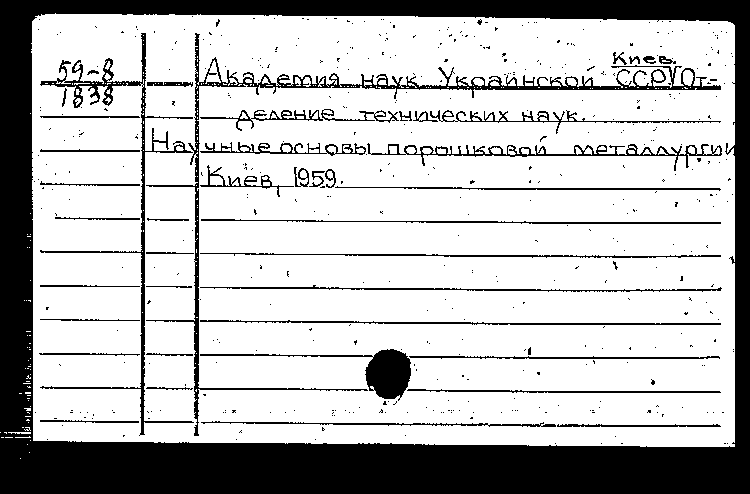 Киев.
59-8 Академия наук Украинской ССР/От-
1838
деление технических наук.
Научные основы порошковой металлургии
Киев, 1959.